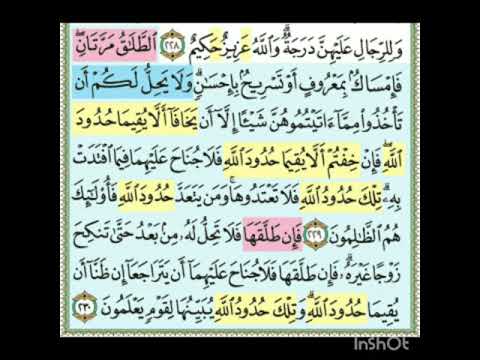 وَلِلرِّجَالِ عَلَيْهِنَّ دَرَجَةٌ ۗ وَاللَّهُ عَزِيزٌ حَكِيمٌ ٢٢٨ الطَّلَاقُ مَرَّتَانِ ۖ
فَإِمْسَاكٌ بِمَعْرُوفٍ أَوْ تَسْرِيحٌ بِإِحْسَانٍ ۗ وَلَا يَحِلُّ لَكُمْ أَن
تَأْخُذُوا مِمَّا آتَيْتُمُوهُنَّ شَيْئًا إِلَّا أَن يَخَافَا أَلَّا يُقِيمَا حُدُودَ
اللَّهِ ۖ فَإِنْ خِفْتُمْ أَلَّا يُقِيمَا حُدُودَ اللَّهِ فَلَا جُنَاحَ عَلَيْهِمَا فِيمَا افْتَدَتْ
بِهِ ۗ تِلْكَ حُدُودُ اللَّهِ فَلَا تَعْتَدُوهَا ۚ وَمَن يَتَعَدَّ حُدُودَ اللَّهِ فَأُولَٰئِكَ
هُمُ الظَّالِمُونَ ٢٢٩ فَإِن طَلَّقَهَا فَلَا تَحِلُّ لَهُ مِن بَعْدُ حَتَّىٰ تَنكِحَ
زَوْجًا غَيْرَهُ ۗ فَإِن طَلَّقَهَا فَلَا جُنَاحَ عَلَيْهِمَا أَن يَتَرَاجَعَا إِن ظَنَّا أَن
يُقِيمَا حُدُودَ اللَّهِ ۗ وَتِلْكَ حُدُودُ اللَّهِ يُبَيِّنُهَا لِقَوْمٍ يَعْلَمُونَ ٢٣٠
InShOt